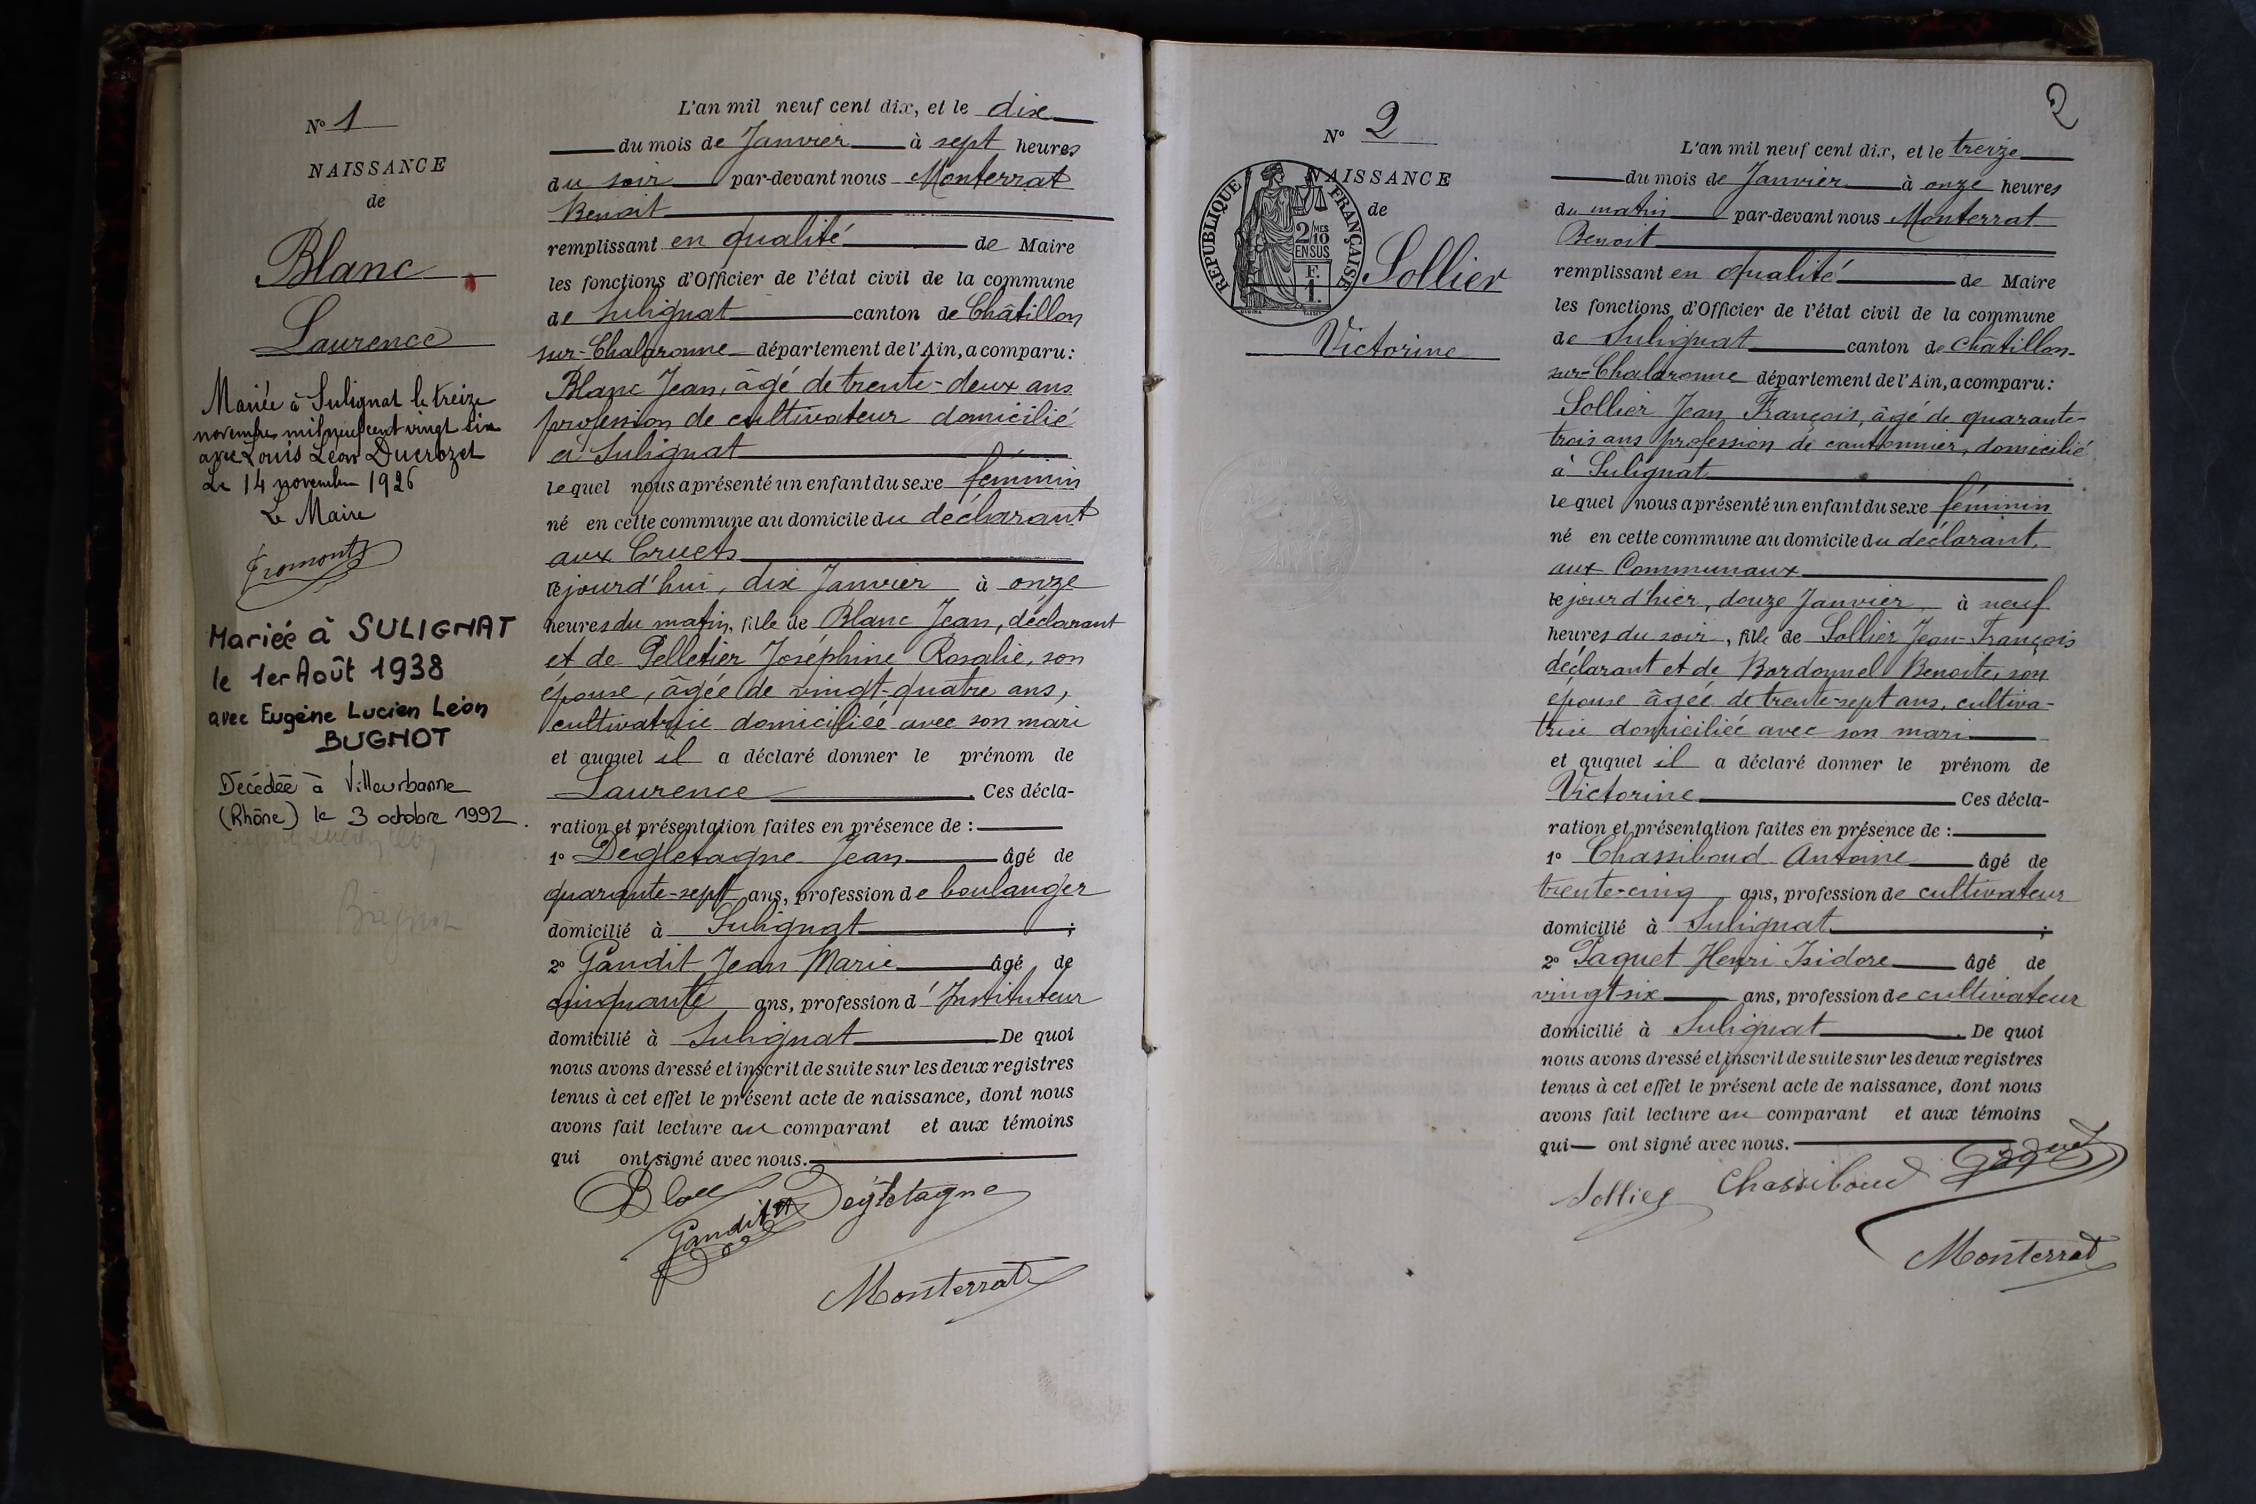 Nº 1
NAISSANCE
de
Blanc
Laurence
Mariée à Sulignat le treize
novembre mil neuf cent vingt six
avec Louis Léon Ducrozet
Le 14 novembre 1926
Le Maire
Fromont
Mariée à SULIGNAT
le 1er Août 1938
avec Eugène Lucien Léon
BUGNOT
Décédée à Villeurbanne
(Rhône) le 3 octobre 1992.
L'an mil neuf cent dix, et le dix
du mois de Janvier à sept heures
du soir par-devant nous Monterrat
Benoit
remplissant en qualité de Maire
les fonctions d'Officier de l'état civil de la commune
de Sulignat canton de Châtillon
sur-Chalaronne département de l'Ain, a comparu:
Blanc Jean, âgé de trente-deux ans
profession de cultivateur domicilié
à Sulignat
lequel nous a présenté un enfant du sexe féminin
né en cette commune au domicile du déclarant
aux Cruets
cejourd'hui, dix Janvier à onze
heures du matin, fille de Blanc Jean, déclarant
et de Pelletier Joséphine Rosalie, son
épouse, âgée de vingt-quatre ans,
cultivatrice domiciliée avec son mari
et auquel il a déclaré donner le prénom de
Laurence. Ces décla-
ration et présentation faites en présence de :
1º Dégletagne Jean âgé de
quarante-sept ans, profession de boulanger
domicilié à Sulignat ;
2º Gandit Jean Marie âgé de
cinquante ans, profession d'Instituteur
domicilié à Sulignat De quoi
nous avons dressé et inscrit de suite sur les deux registres
tenus à cet effet le présent acte de naissance, dont nous
avons fait lecture au comparant et aux témoins
qui ont signé avec nous.
Gandit Dégletagne
Monterrat
2
Nº 2
NAISSANCE
de
REPUBLIQUE FRANÇAISE
2/10 MES
EN SUS
F.
1.
Sollier
Victorine
L'an mil neuf cent dix, et le treize
du mois de Janvier à onze heures
du matin par-devant nous Monterrat
Benoit
remplissant en qualité de Maire
les fonctions d'Officier de l'état civil de la commune
de Sulignat canton de Châtillon-
sur-Chalaronne département de l'Ain, a comparu:
Sollier Jean François, âgé de quarante-
trois ans profession de cantonnier, domicilié
à Sulignat
lequel nous a présenté un enfant du sexe féminin
né en cette commune au domicile du déclarant,
aux Communaux
le jour d'hier, douze Janvier à neuf
heures du soir, fille de Sollier Jean-François
déclarant et de Bordonnel Benoite, son
épouse âgée de trente-sept ans, cultiva-
trice domiciliée avec son mari
et auquel il a déclaré donner le prénom de
Victorine Ces décla-
ration et présentation faites en présence de :
1º Chassiboud Antoine âgé de
trente-cinq ans, profession de cultivateur
domicilié à Sulignat ;
2º Paquet Henri Isidore âgé de
vingt-six ans, profession de cultivateur
domicilié à Sulignat. De quoi
nous avons dressé et inscrit de suite sur les deux registres
tenus à cet effet le présent acte de naissance, dont nous
avons fait lecture au comparant et aux témoins
qui ont signé avec nous.
Sollier Chassiboud Paquet
Monterrat